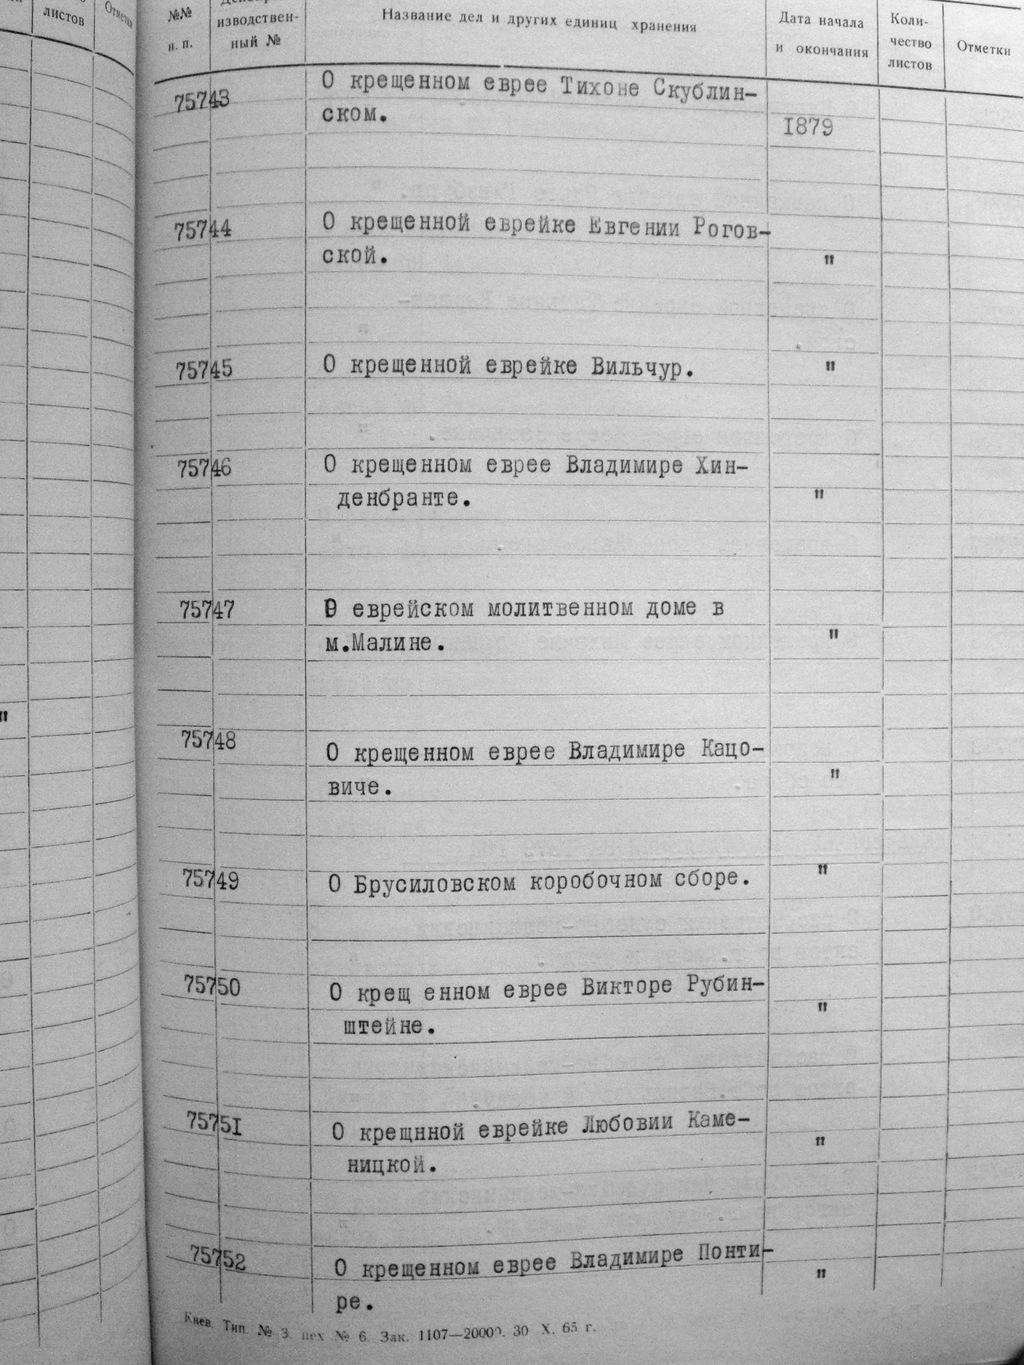 листов
Отметки
№№
п. п.
изводствен-
ный №
Название дел и других единиц хранения
Дата начала
и окончания
Коли-
чество
листов
Отметки
75743
О крещенном еврее Тихоне Скублин-
ском.
1879
75744
О крещенной еврейке Евгении Рогов-
ской.
"
75745
О крещенной еврейке Вильчур.
"
75746
О крещенном еврее Владимире Хин-
денбранте.
"
75747
О еврейском молитвенном доме в
м.Малине.
"
"
75748
О крещенном еврее Владимире Кацо-
виче.
"
75749
О Брусиловском коробочном сборе.
"
75750
О крещ енном еврее Викторе Рубин-
штейне.
"
75751
О крещнной еврейке Любовии Каме-
ницкой.
"
75752
О крещенном еврее Владимире Понти-
ре.
"
Киев. Тип. № 3. цех № 6. Зак. 1107—20000. 30 X. 65 г.